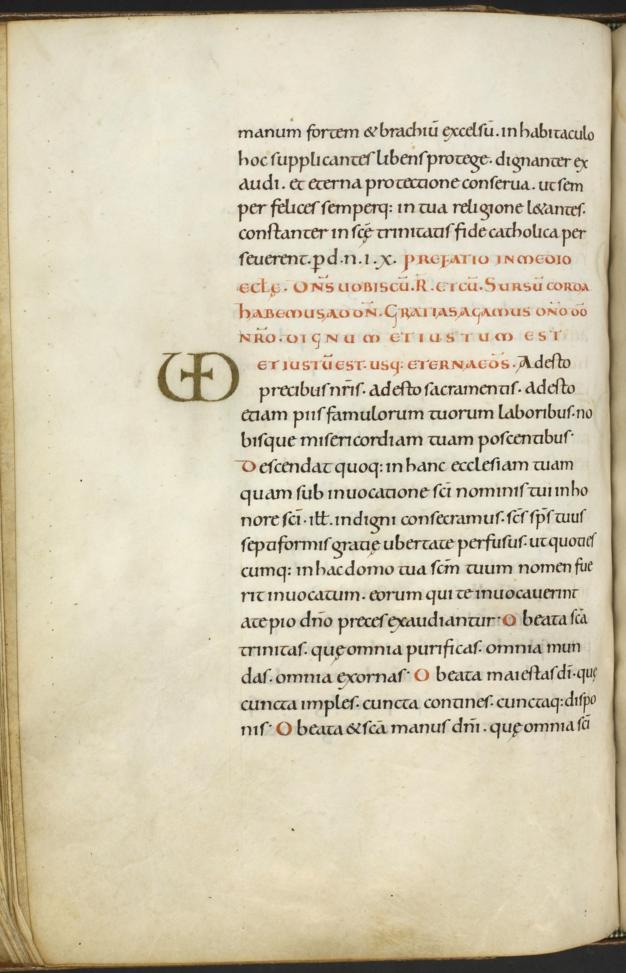 manum fortem & brachiū excelsū. in habitaculo
hoc supplicantes libens protege. dignanter ex
audi. et eterna protectione conserua. ut sem
per felices semperq: in tua religione l&antes.
constanter in scę trinitatis fide catholica per
seuerent. p̄ d.n.i.x. PREFATIO IN MEDIO
ECLE. DN̄S UOBISCŪ. R. ET CŪ. SURSŪ CORDA
HABEMUS AD DN̄. GRATIAS AGAMUS DN̄O DŌ
NR̄O. DIGNUM ET IUSTUM EST
UD ET IUSTŪ EST. USQ: ETERNAE DS̄. Adesto
precibus nr̄is. adesto sacramentis. adesto
etiam piis famulorum tuorum laboribus. no
bisque misericordiam tuam poscentibus.
Descendat quoq: in hanc ecclesiam tuam
quam sub inuocatione sc̄i nominis tui in ho
nore sc̄i. ill̄. indigni consecramus. sc̄s sp̄s tuus
septiformis gratię ubertate perfusus. ut quoties
cumq: in hac domo tua sc̄m tuum nomen fue
rit inuocatum. eorum qui te inuocauerint
ate pio dn̄o preces exaudiantur. O beata sc̄a
trinitas. quę omnia purificas. omnia mun
das. omnia exornas. O beata maiestas dī. quę
cuncta imples. cuncta contines. cunctaq: dispo
nis. O beata & sc̄a manus dn̄i. quę omnia sc̄i